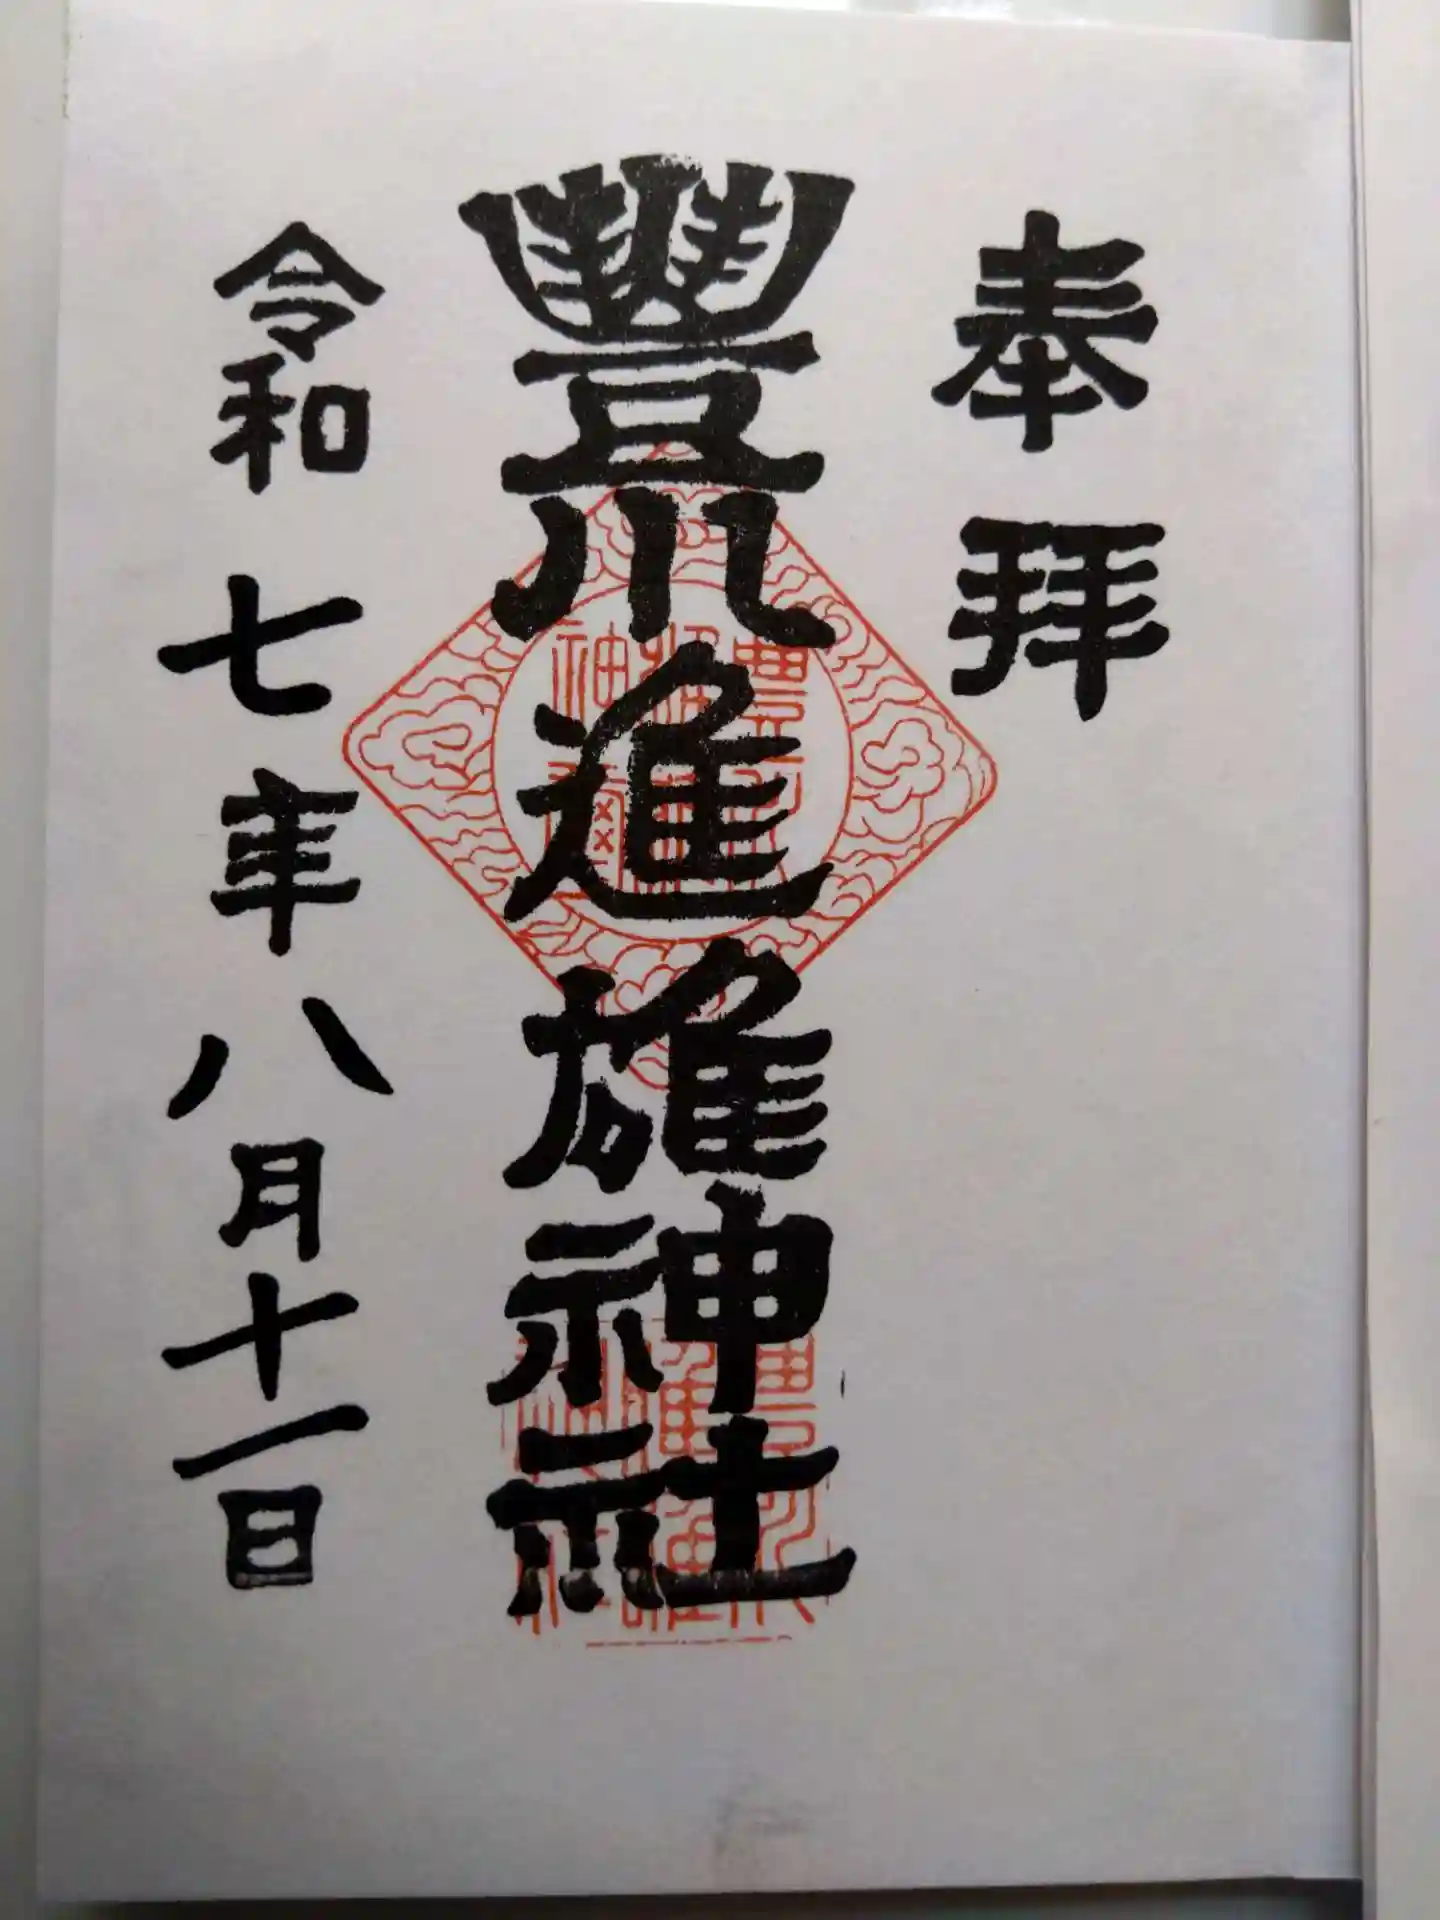 奉拝
豊川進雄神社
令和七年八月十一日